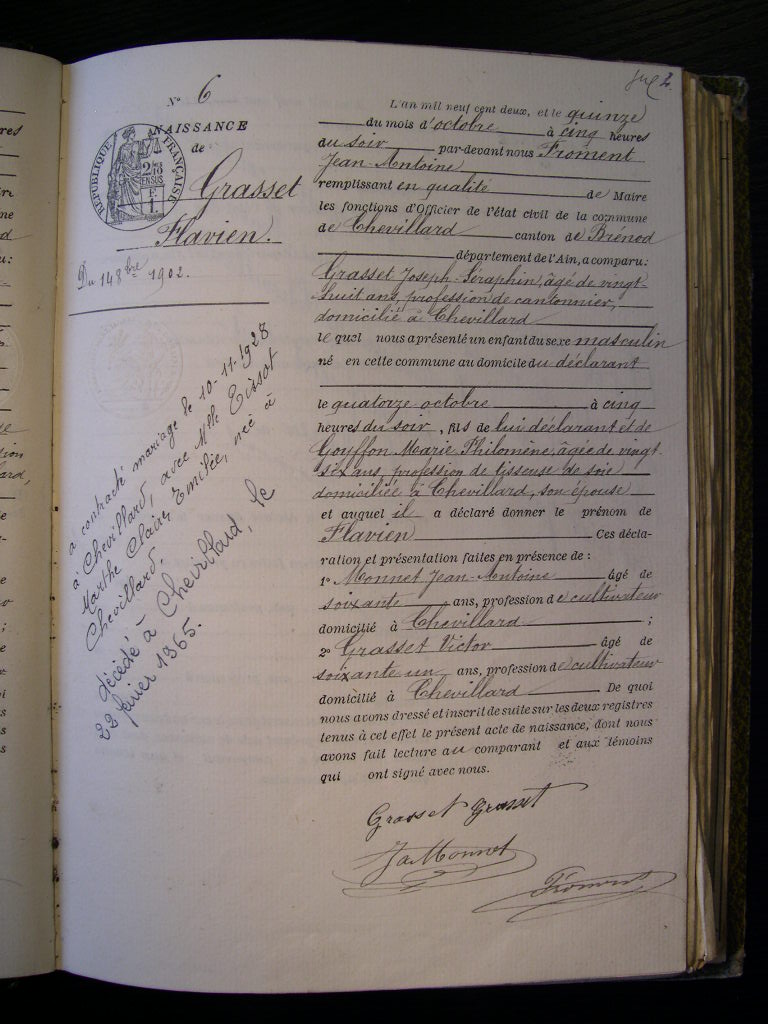 Nº 6
NAISSANCE
de
Grasset
Flavien.
Du 14 8bre 1902.
RÉPUBLIQUE FRANÇAISE
a contracté mariage le 10-11-1928
à Chevillard, avec Mlle Tissot
Marthe Claire Emilie, née à
Chevillard.
décédé à Chevillard, le
22 février 1965.
L'an mil neuf cent deux, et le quinze
du mois d'octobre à cinq heures
du soir par-devant nous Froment
Jean-Antoine
remplissant en qualité de Maire
les fonctions d'Officier de l'état civil de la commune
de Chevillard canton de Brénod
département de l'Ain, a comparu:
Grasset Joseph-Séraphin, âgé de vingt-
huit ans, profession de cantonnier,
domicilié à Chevillard
lequel nous a présenté un enfant du sexe masculin
né en cette commune au domicile du déclarant
le quatorze octobre à cinq
heures du soir, fils de lui déclarant et de
Gouffon Marie Philomène, âgée de vingt-
six ans, profession de tisseuse de soie
domiciliée à Chevillard, son épouse
et auquel il a déclaré donner le prénom de
Flavien Ces décla-
ration et présentation faites en présence de :
1º Monnet Jean-Antoine âgé de
soixante ans, profession de cultivateur
domicilié à Chevillard ;
2º Grasset Victor âgé de
soixante un ans, profession de cultivateur
domicilié à Chevillard De quoi
nous avons dressé et inscrit de suite sur les deux registres
tenus à cet effet le présent acte de naissance, dont nous
avons fait lecture au comparant et aux témoins
qui ont signé avec nous.
Grasset Grasset
Ja Monnet
Froment